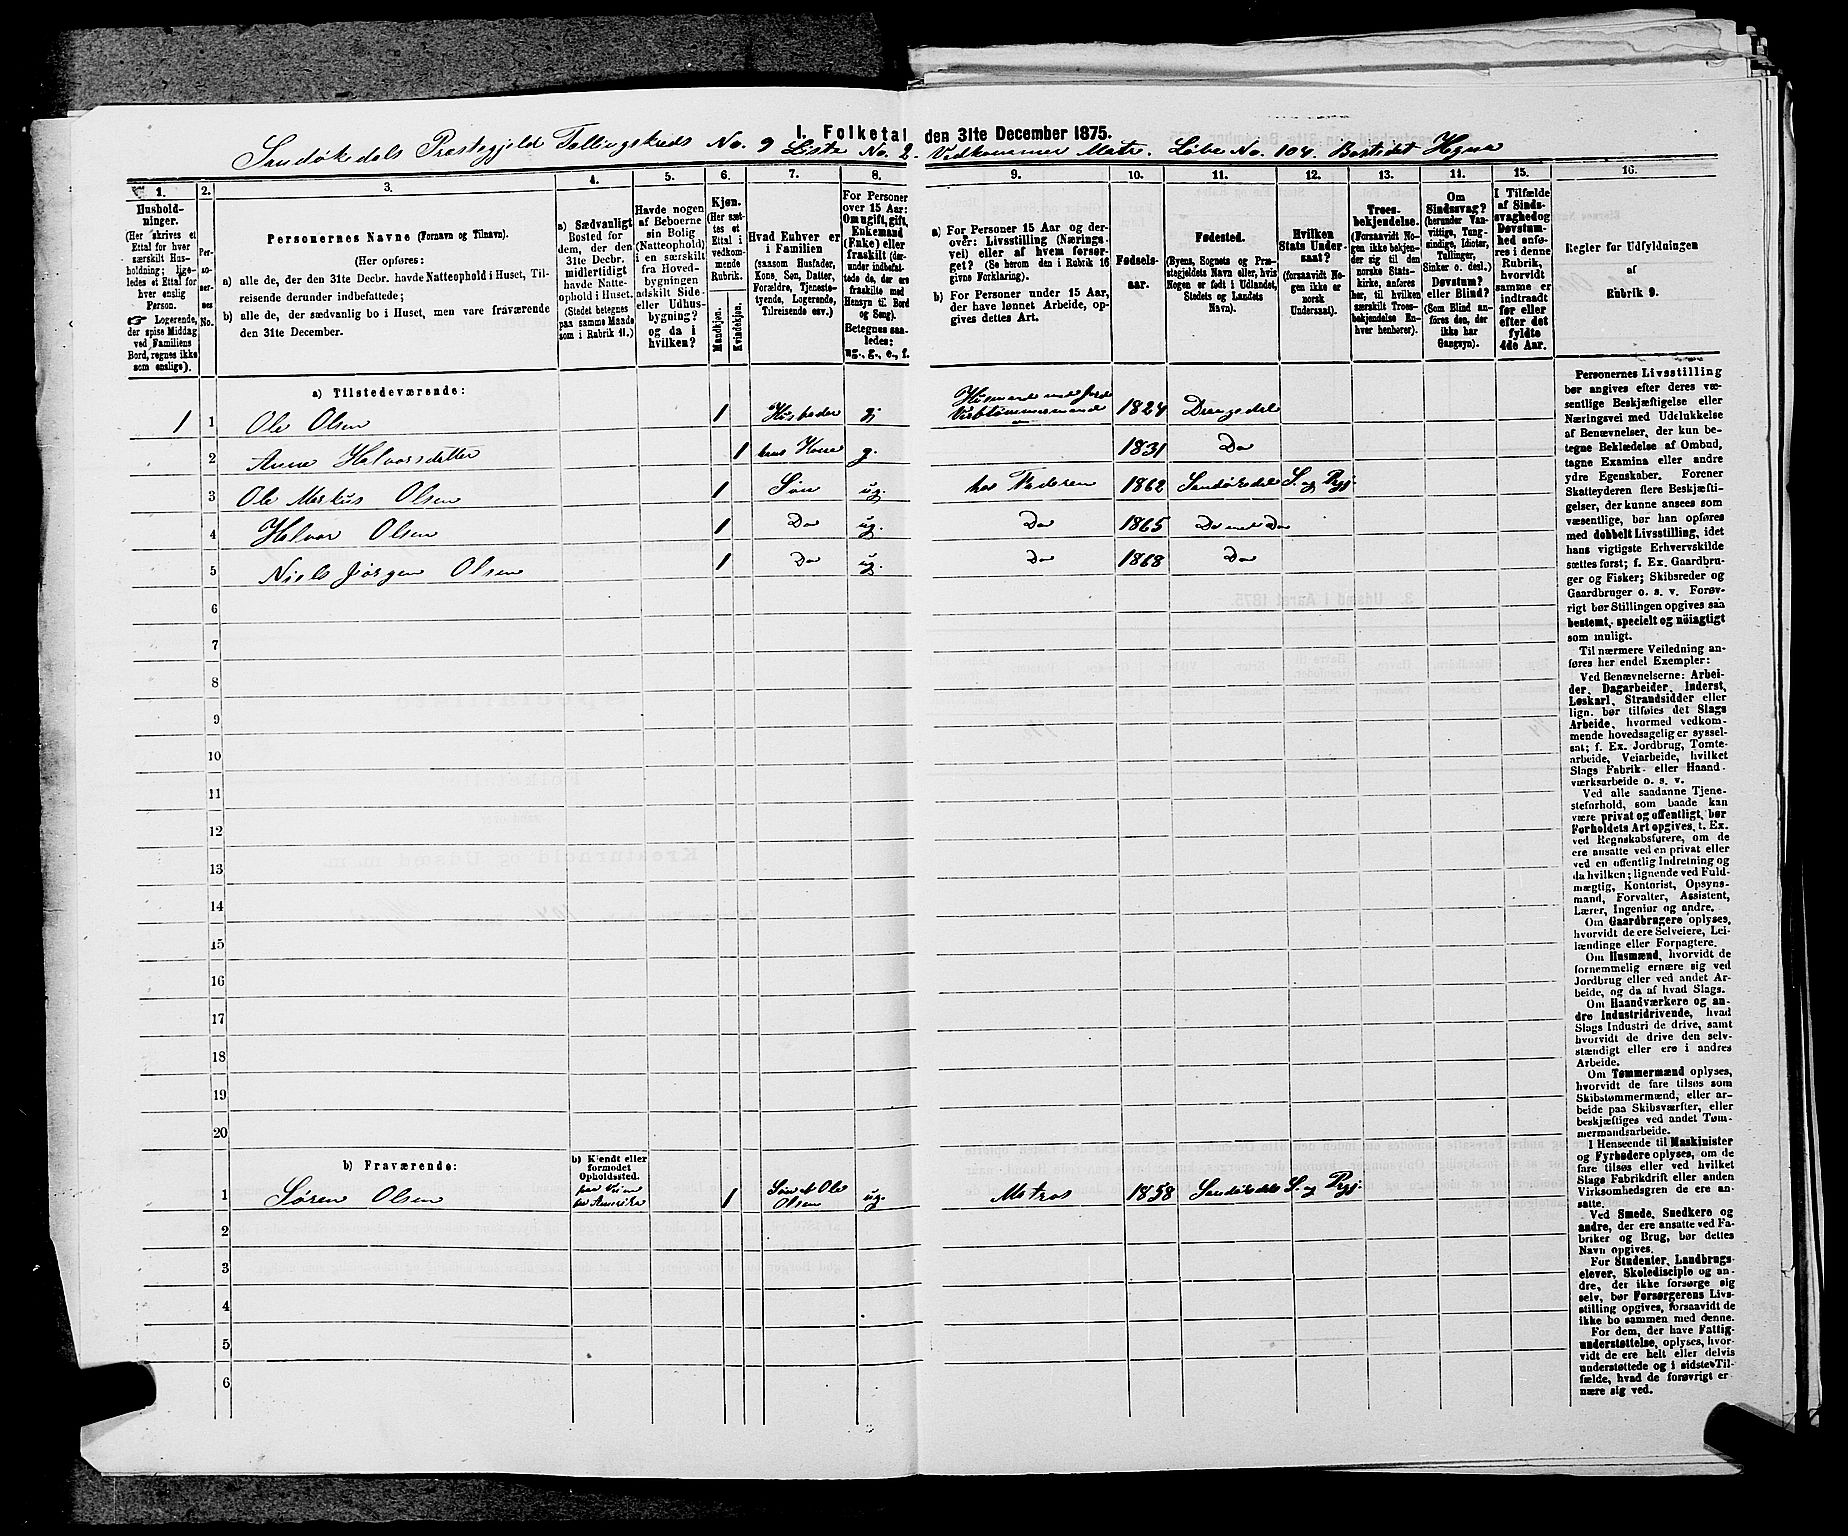 I. Folketal den 31te December 1875.
Sandøkedals Præstegjeld Tællingskreds No. 9 Liste No. 2. Vedkommer Matr. Løbe No. 104. Bostedet Hegna
1.
Husholdninger.
(Her skrives et
Ettal for hver
særskilt Husholdning; ligeledes et Ettal for
hver enslig
Person.
☞ Logerende,
der spise Middag
ved Familiens
Bord, regnes ikke
som enslige).
2.
Personernes No.
3.
Personernes Navne (Fornavn og Tilnavn).
(Her opføres:
a) alle de, der den 31te Decbr. havde Natteophold i Huset, Tilreisende derunder indbefattede;
b) alle de, der sædvanlig bo i Huset, men vare fraværende
den 31te December.
4.
a) Sædvanligt
Bosted for
dem, der den
31te Decbr.
midlertidigt
havde Natteophold i Huset.
(Stedet betegnes
paa samme Maade
som i Rubrik 11.)
5.
Havde nogen
af Beboerne
sin Bolig
(Natteophold)
i en særskilt
fra Hovedbygningen
adskilt Side-
eller Udhusbygning?
og da i
hvilken?
6.
Kjøn.
(Her sættes et
Ettal i
vedkommende
Rubrik.
Mandkjøn.
Kvindekjøn.
7.
Hvad Enhver er
i Familien
(saasom Husfader,
Kone, Søn, Datter,
Forældre, Tjenestetyende, Logerende,
Tilreisende osv.)
8.
For Personer
over 15 Aar:
Om ugift, gift,
Enkemand
(Enke) eller
fraskilt (derunder indbefattede de, der ere
fraskilte med
Hensyn til Bord
og Seng).
Betegnes saaledes:
ug., g., e., f.
9.
a) For Personer 15 Aar og derover: Livsstilling (Næringsvei) eller af hvem forsørget? (Se herom den i Rubrik 16
givne Forklaring).
b) For Personer under 15 Aar,
der have lønnet Arbeide, opgives dettes Art.
10.
Fødselsaar.
11.
Fødested.
(Byens, Sognets og Præstegjeldets Navn eller, hvis
Nogen er født i Udlandet,
Stedets og Landets
Navn).
12.
Hvilken
Stats Undersaat?
(forsaavidt Nogen ikke er
norsk
Undersaat).
13.
Troesbekjendelse.
(Forsaavidt Nogen ikke bekjender sig til den
norske Statskirke, anføres
her, til hvilken
særskilt Troesbekjendelse Enhver henhører).
14.
Om
Sindssvag?
(herunder Vanvittige, Tungsindige, Idioter,
Tullinger,
Sinker o. desl.)
Døvstum?
eller Blind?
(Som Blind anføres den, der
ikke har
Gangsyn).
15.
I Tilfælde
af Sindssvaghed og
Døvstumhed anføres i denne
Rubrik,
hvorvidt
samme er
indtraadt
før eller
efter det
fyldte
4de Aar.
16.
Regler for Udfyldningen
af
Rubrik 9.
a) Tilstedeværende:
1 1 Ole Olsen 1 Husfader g. Husmand med Jord Skibstømmermand 1824 Drangedal
2 Anne Halvorsdatter 1 hans Kone g. 1831 Do
3 Ole Markus Olsen 1 Søn ug. hos Faderen 1862 Sandøkedal S. og Prgj.
4 Halvor Olsen 1 Do ug. Do 1865 Do
5 Niels Jørgen Olsen 1 Do ug. Do 1868 Do
6
7
8
9
10
11
12
13
14
15
16
17
18
19
20
b) Fraværende:
b) Kjendt eller
formodet
Opholdssted.
1 Søren Olsen paa Reise fra Amerika 1 Søn af Ole Olsen ug. Matros 1858 Sandøkedals S. og Prgj.
2
3
4
5
6
Personernes Livsstilling
bør angives efter deres væsentlige Beskjæftigelse eller
Næringsvei med Udelukkelse
af Benævnelser, der kun betegne Beklædelse af Ombud,
tagne Examina eller andre
ydre Egenskaber. Forener
Skatteyderen flere Beskjæftigelser, der kunne ansees som
væsentlige, bør han opføres
med dobbelt Livsstilling, idet
hans vigtigste Erhvervskilde
sættes først; f. Ex. Gaardbruger og Fisker; Skibsreder og
Gaardbruger o. s. v. Forøvrigt bør Stillingen opgives saa
bestemt, specielt og nøiagtigt
som muligt.
Til nærmere Veiledning anføres her endel Exempler:
Ved Benævnelserne: Arbeider, Dagarbeider, Inderst,
Løskarl, Strandsidder eller
lign. bør tilføies det Slags
Arbeide, hvormed vedkommende hovedsagelig er sysselsat; f. Ex. Jordbrug, Tomtearbeide, Veiarbeide, hvilket
Slags Fabrik- eller Haandværksarbeide o. s. v.
Ved alle saadanne Tjenesteforhold, som baade kan
være privat og offentligt, bør
Forholdets Art opgives, t. Ex.
ved Regnskabsførere, om de
ere ansatte ved en privat eller
ved en offentlig Indretning og
da hvilken; lignende ved Fuldmægtig, Kontorist, Opsynsmand, Forvalter, Assistent,
Lærer, Ingeniør og andre.
Om Gaardbrugere oplyses,
hvorvidt de ere Selveiere, Leilændinge eller Forpagtere.
Om Husmænd, hvorvidt de
fornemmelig ernære sig ved
Jordbrug eller ved andet Arbeide, og da af hvad Slags.
Om Haandværkere og andre Industridrivende, hvad
Slags Industri de drive, samt
hvorvidt de drive den selvstændigt eller ere i andres
Arbeide.
Om Tømmermænd oplyses,
hvorvidt de fare tilsøs som
Skibstømmermænd, eller arbeide paa Skibsværfter, eller
beskjæftiges ved andet Tømmermandsarbeide.
I Henseende til Maskinister
og Fyrbødere oplyses, om de
fare tilsøs eller ved hvilket
Slags Fabrikdrift eller anden
Virksomhedsgren de ere ansatte.
Ved Smede, Snedkere og
andre, der ere ansatte ved Fabriker og Brug, bør dettes
Navn opgives.
For Studenter, Landbrugselever, Skoledisciple og andre, der ikke forsørge sig
selv, bør Forsørgerens Livsstilling opgives, forsaavidt de
ikke bo sammen med denne.
For dem, der have Fattigunderstøttelse, oplyses, hvorvidt de ere helt eller delvis
understøttede og i sidste Tilfælde, hvad de forøvrigt ernære sig ved.